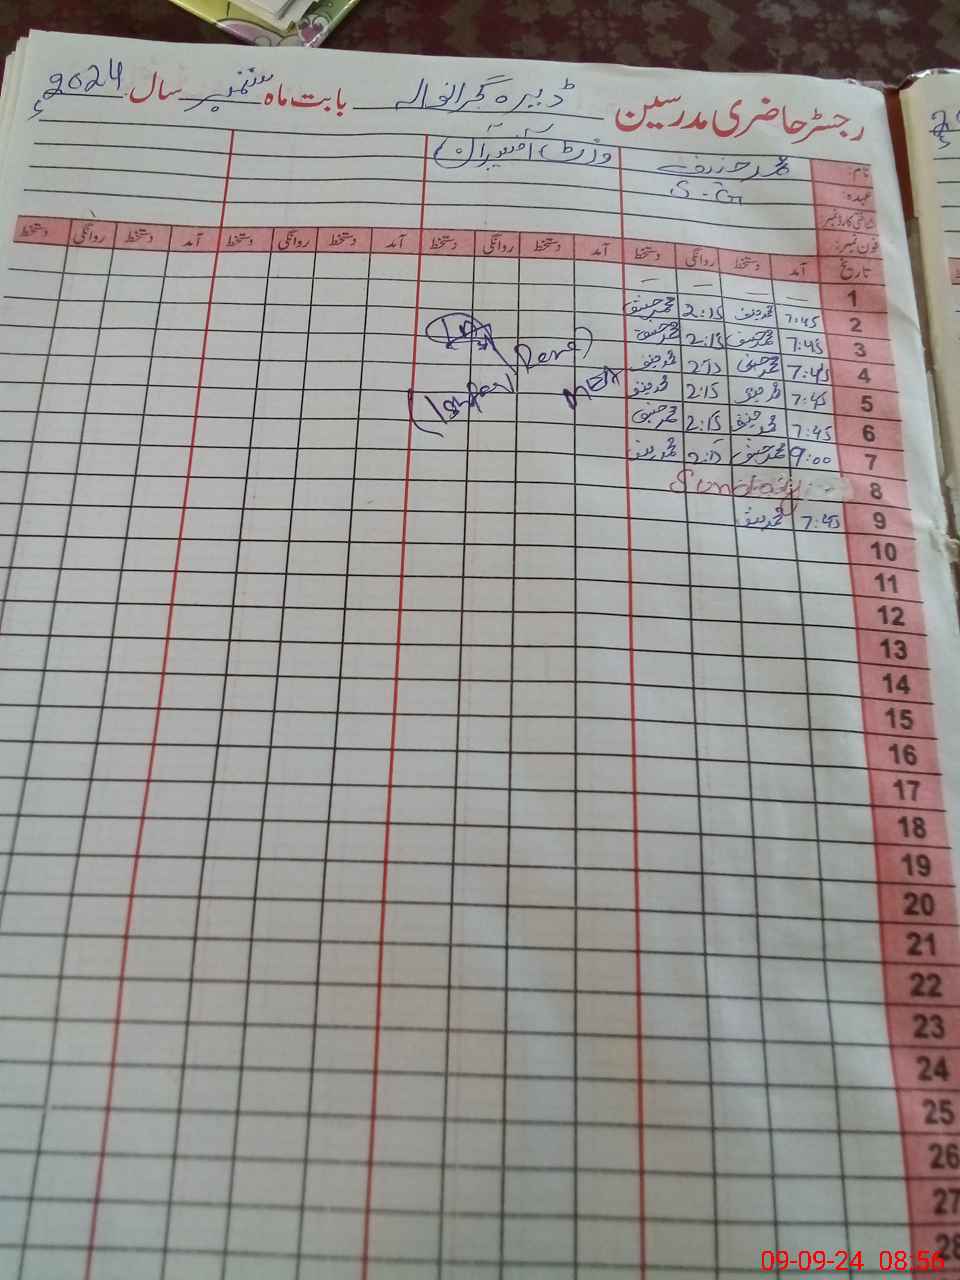 رجسٹر حاضری مدرسین ڈیرہ گجرانوالہ بابت ماہ ستمبر سال 2024ء
نام: محمد حنیف وزٹ آفیسران
عہدہ: S-G
شناختی کارڈ نمبر:
فون نمبر:
تاریخ آمد دستخط روانگی دستخط آمد دستخط روانگی دستخط آمد دستخط روانگی دستخط آمد دستخط روانگی دستخط
1 — — — —
2 7:45 محمد حنیف 2:15 محمد حنیف
3 7:45 محمد حنیف 2:15 محمد حنیف
4 7:45 محمد حنیف 2:15 محمد حنیف
5 7:45 محمد حنیف 2:15 محمد حنیف
6 7:45 محمد حنیف 2:15 محمد حنیف
7 9:00 محمد حنیف 2:15 محمد حنیف
8 Sunday
9 7:45 محمد حنیف
10
11
12
13
14
15
16
17
18
19
20
21
22
23
24
25
26
27
28
MEA
09-09-24 08:56